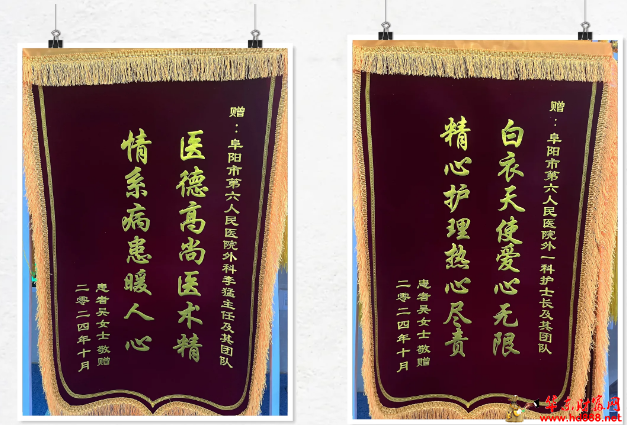 赠：阜阳市第六人民医院外科李猛主任及其团队
医德高尚医术精
情系病患暖人心
患者吴女士 敬赠
二零二四年十月
赠：阜阳市第六人民医院外一科护士长及其团队
白衣天使爱心无限
精心护理热心尽责
患者吴女士 敬赠
二零二四年十月
华东财富网
www.hd988.net